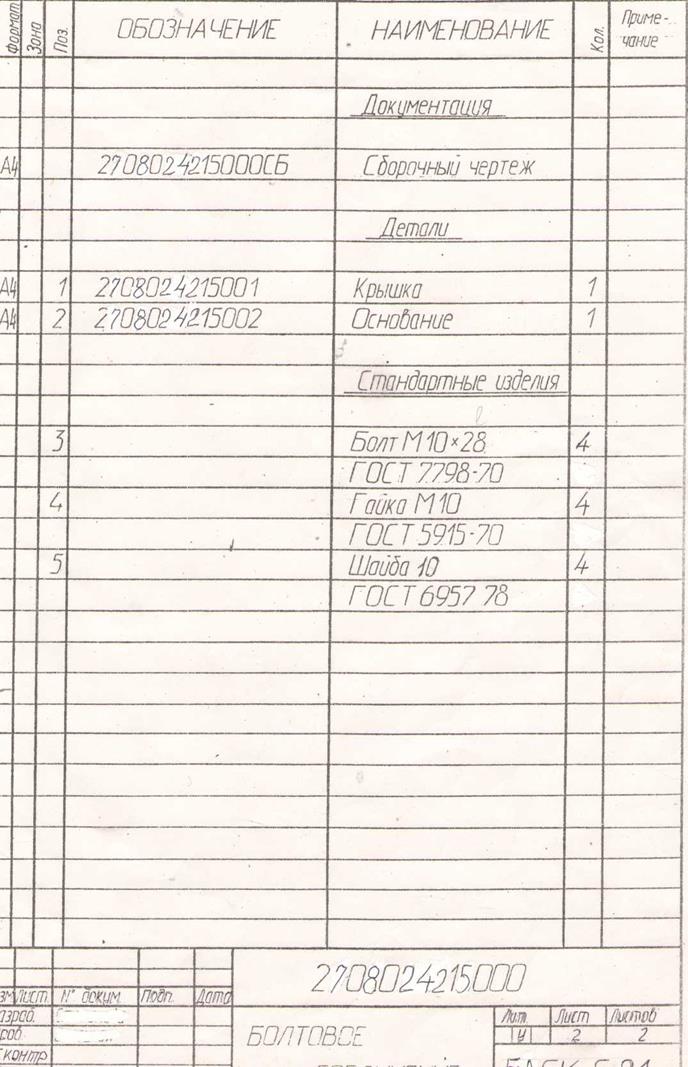 Формат Зона Поз. ОБОЗНАЧЕНИЕ НАИМЕНОВАНИЕ Кол. Приме-
чание
Документация
А4 2708024215000СБ Сборочный чертеж
Детали
А4 1 2708024215001 Крышка 1
А4 2 2708024215002 Основание 1
Стандартные изделия
3 Болт М10×28 4
ГОСТ 7798-70
4 Гайка М10 4
ГОСТ 5915-70
5 Шайба 10 4
ГОСТ 6957 78
2708024215000
Лист № докум. Подп. Дата
БОЛТОВОЕ
Лит. Лист Листов
У 2 2